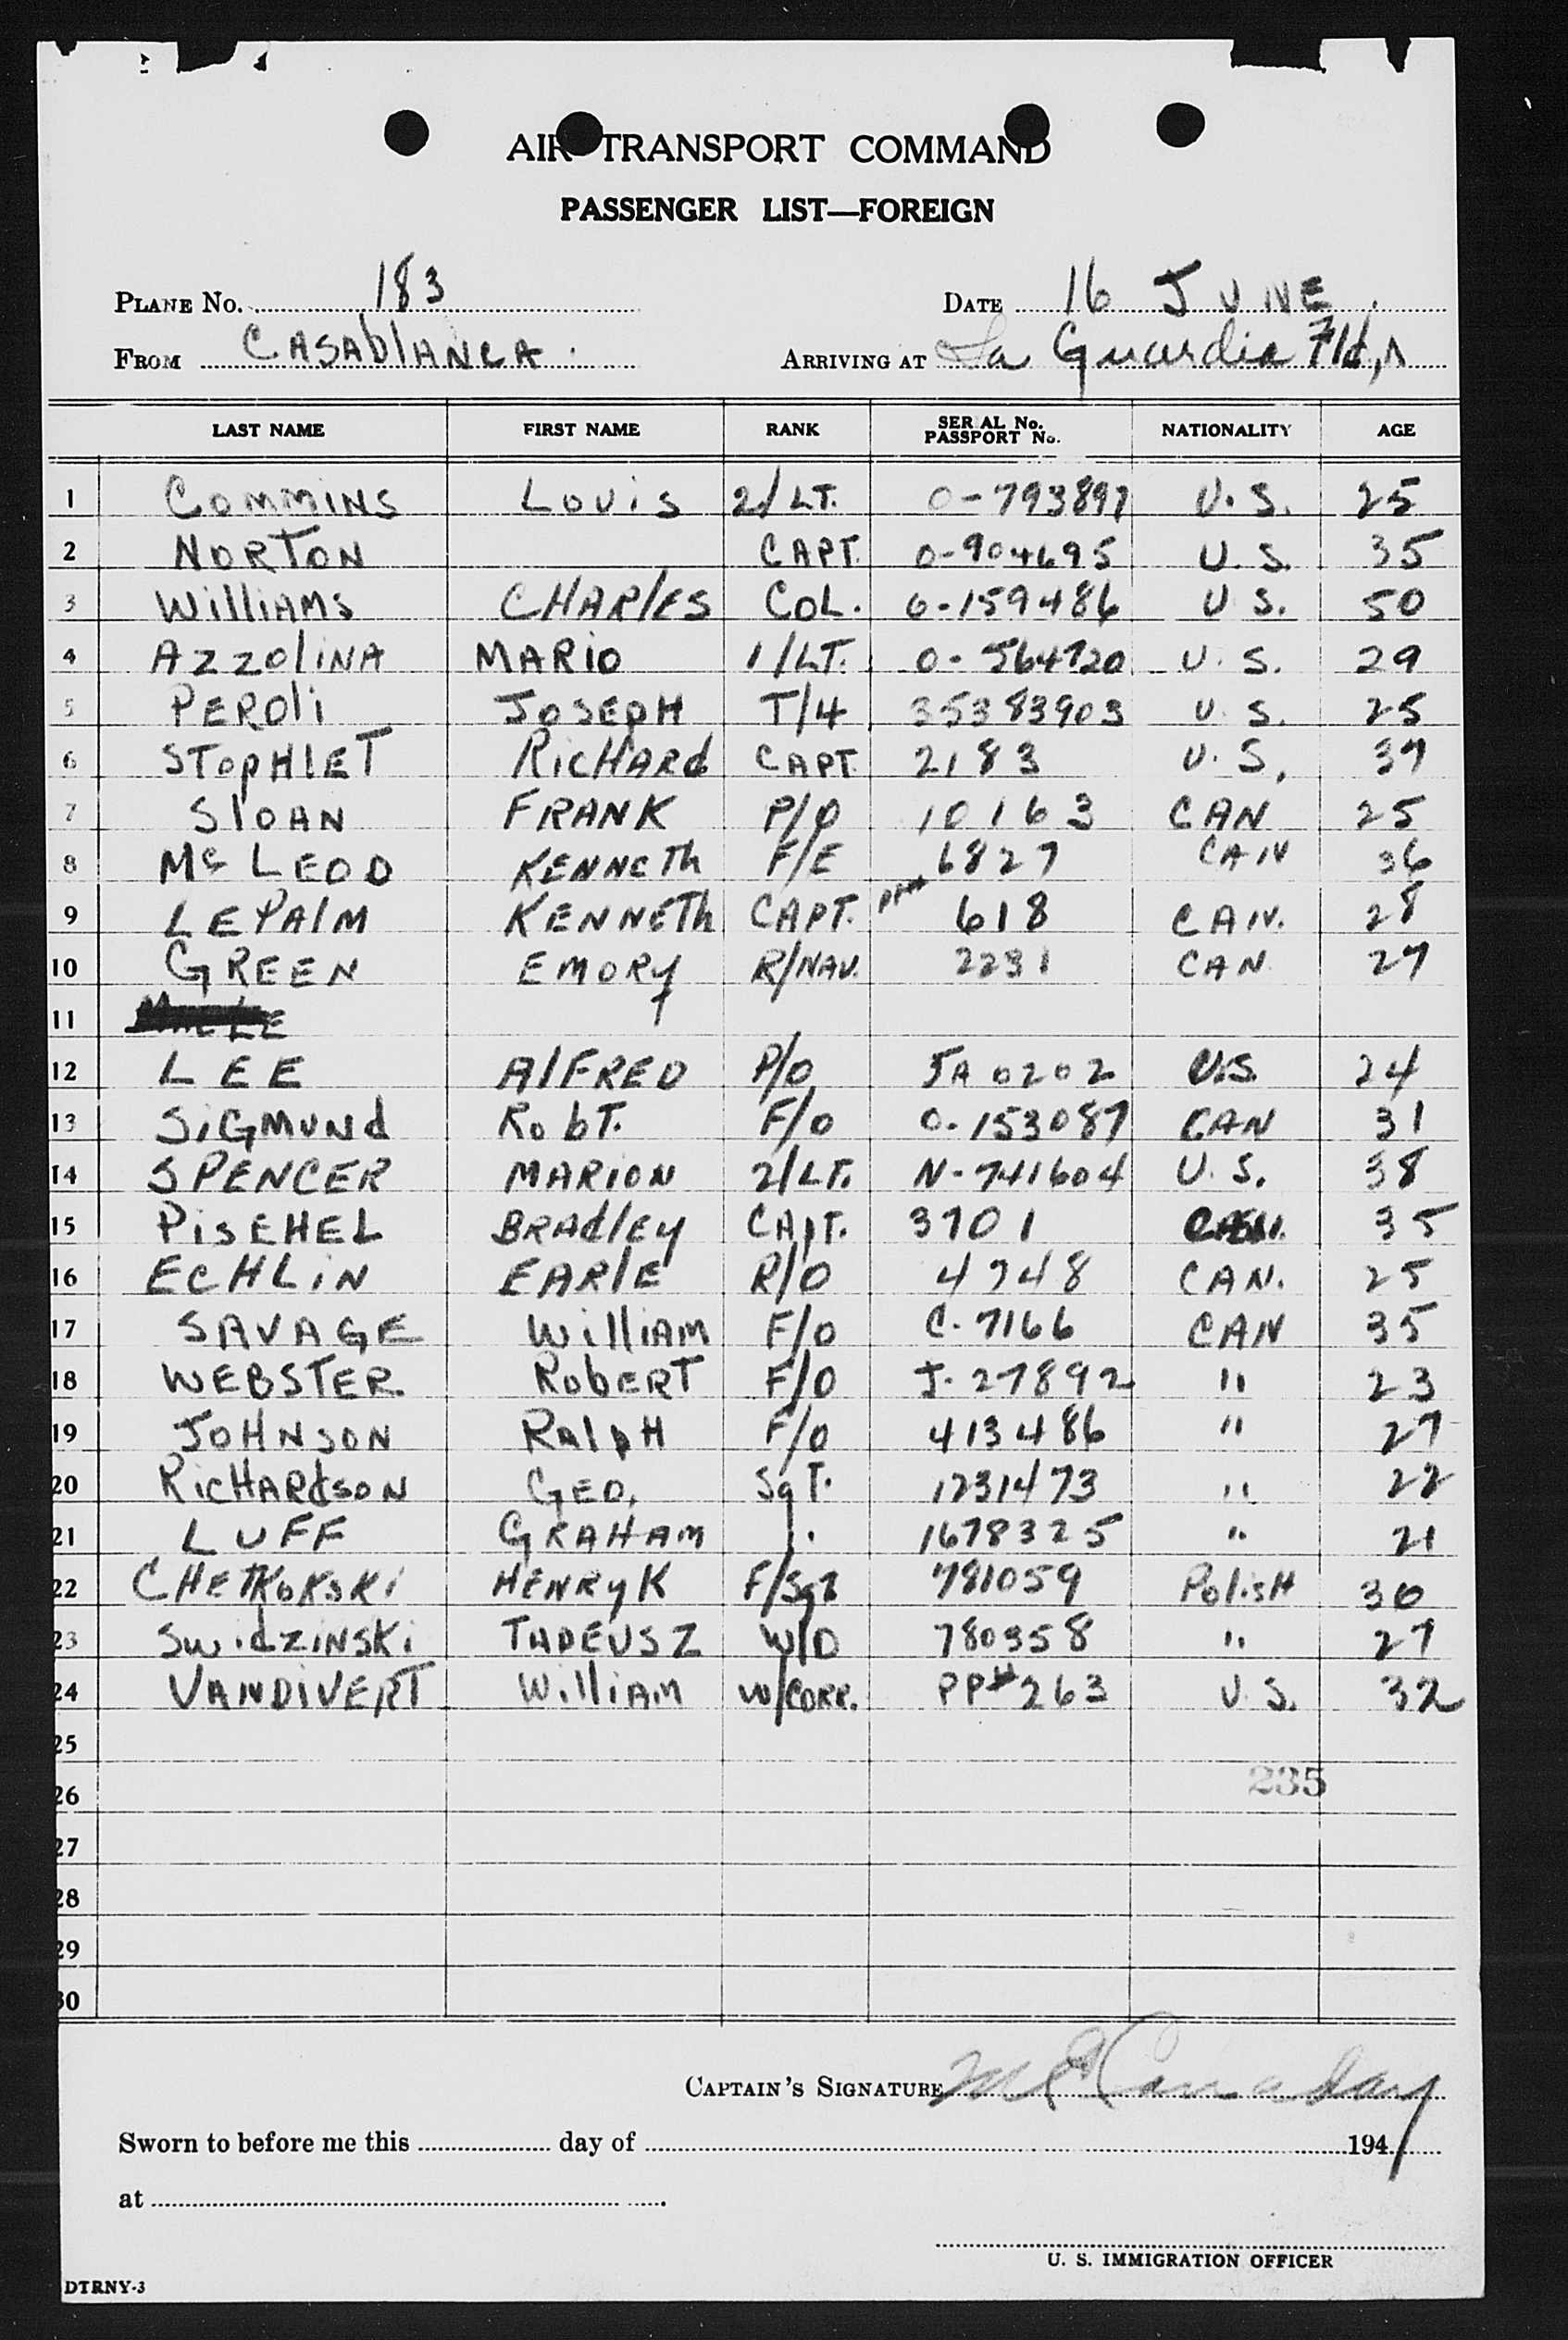 AIR TRANSPORT COMMAND
PASSENGER LIST—FOREIGN
PLANE No. 183 DATE 16 JUNE
FROM CASAblANCA ARRIVING AT La Guardia Fld,
LAST NAME FIRST NAME RANK SERIAL No. PASSPORT No. NATIONALITY AGE
1 COMMINS LOUiS 2/LT. 0-793897 U.S. 25
2 NORTON CAPT. 0-904695 U.S. 35
3 WilliAMS CHARlES COL. 0-159486 U S. 50
4 AZZOliNA MARIO 1/LT. 0-564720 U.S. 29
5 PEROli JOSEPH T/4 35383903 U.S. 25
6 STOPHlET RiCHARd CAPT 2183 U.S. 37
7 SlOAN FRANK P/O 10163 CAN 25
8 Mc LEOD KENNETh F/E 6827 CAN 36
9 LEPAlM KENNETh CAPT. 618 CAN. 28
10 GREEN EMORy R/NAV. 2231 CAN 27
11
12 LEE AlFRED P/O JA 0202 U.S. 24
13 SiGMUNd RobT. F/O 0-153087 CAN 31
14 SPENCER MARION 2/LT. N-741604 U.S. 38
15 PiSEHEL BRAdlEy CAPT. 3701 CAN. 35
16 ECHLiN EARlE R/O 4748 CAN. 25
17 SAVAGE WilliAM F/O C-7166 CAN 35
18 WEBSTER RobERT F/O J-27892 " 23
19 JOHNSON RAlpH F/O 413486 " 27
20 RicHARdSON GEO. SgT. 1231473 " 22
21 LUFF GRAHAM " 1678325 " 21
22 CHETKOKSKi HENRyK F/Sgt 781059 PolisH 30
23 SwidZiNSKi TADEUSZ W/O 780358 " 27
24 VANDIVERT WilliAM W/CORR. PP# 263 U.S. 32
25
26 235
27
28
29
30
CAPTAIN'S SIGNATURE
Sworn to before me this day of 194
at
U. S. IMMIGRATION OFFICER
DTRNY-3